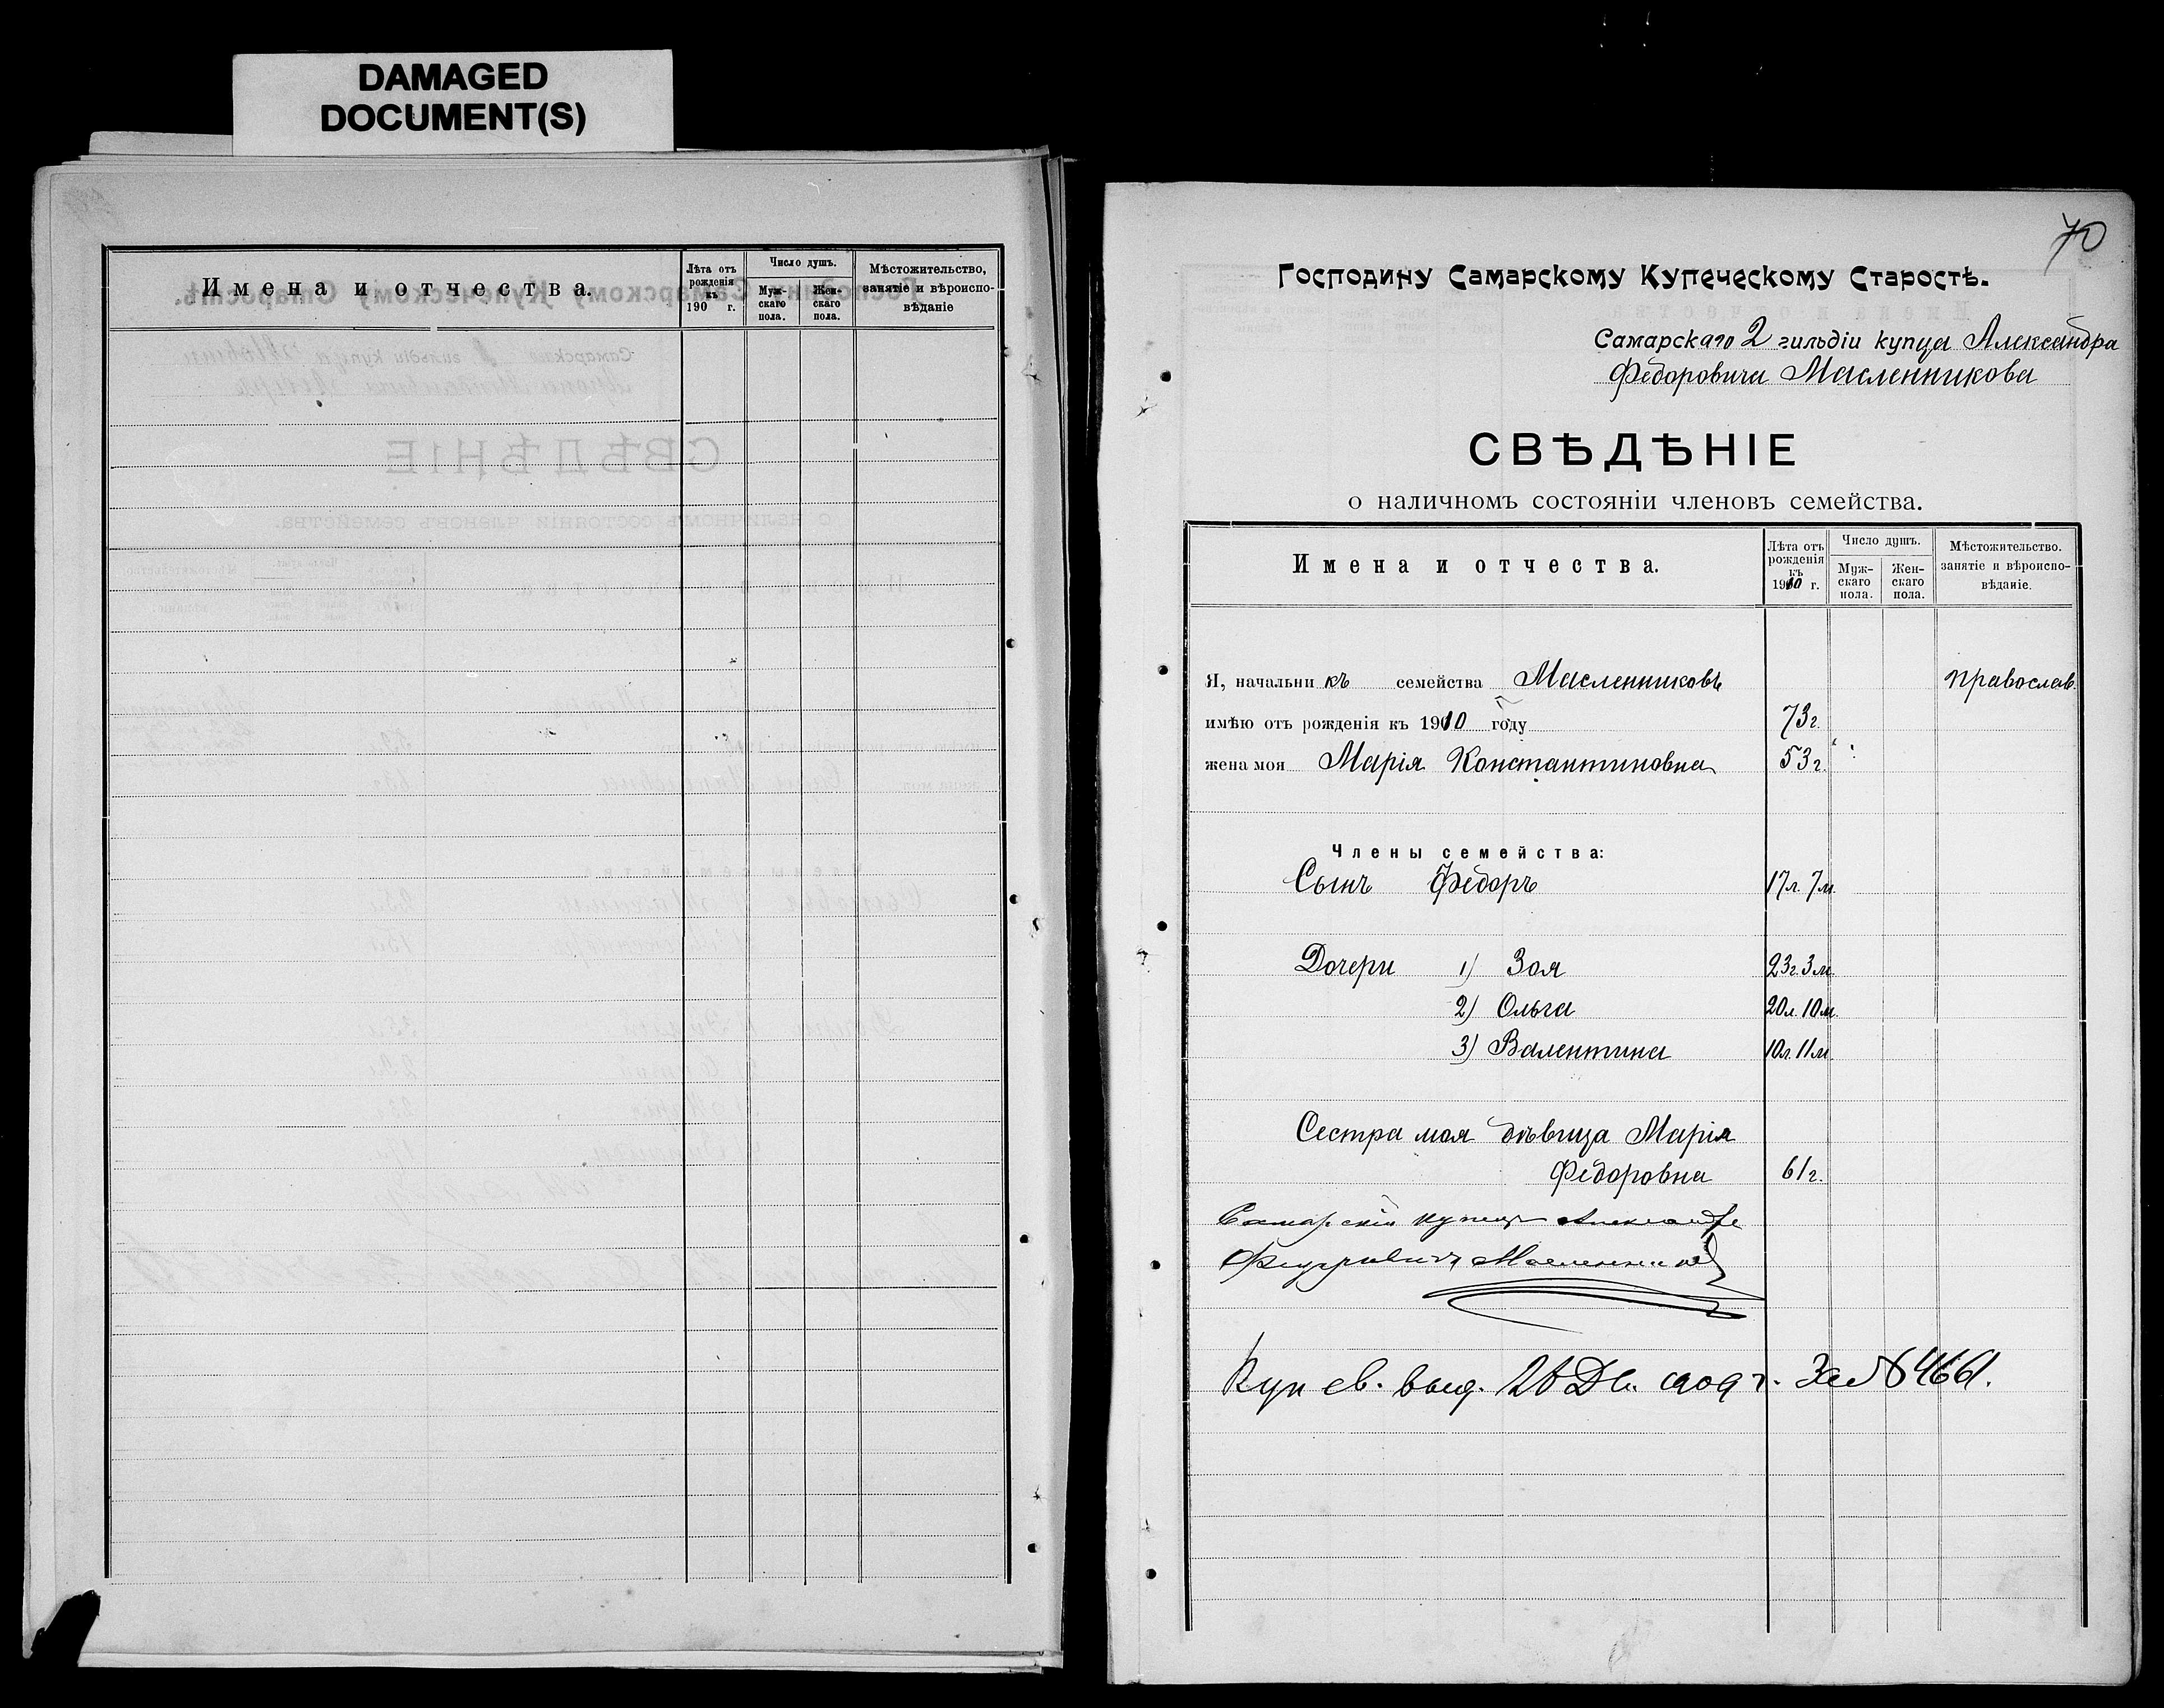 DAMAGED
DOCUMENT(S)
Имена и отчества.
Лѣта отъ
рожденія
къ
190 г.
Число душъ.
Муж-
скаго
пола.
Жен-
скаго
пола.
Мѣстожительство,
занятіе и вѣроиспо-
вѣданіе
70
Господину Самарскому Купеческому Старостѣ.
Самарскаго 2 гильдіи купца Александра
Федоровича Масленникова
СВѢДѢНІЕ
о наличномъ состояніи членовъ семейства.
Имена и отчества.
Лѣта отъ
рожденія
къ
1910 г.
Число душъ.
Муж-
скаго
пола.
Жен-
скаго
пола.
Мѣстожительство.
занятіе и вѣроиспо-
вѣданіе.
Я, начальникъ семейства Масленниковъ православ.
имѣю отъ рожденія къ 1910 году 73 г.
жена моя Марія Константиновна 53 г.
Члены семейства:
Сынъ Федоръ 17 л. 7 м.
Дочери 1) Зоя 23 г. 3 м.
2) Ольга 20 л. 10 м.
3) Валентина 10 л. 11 м.
Сестра моя дѣвица Марія
Федоровна 61 г.
Самарскій купецъ Александръ
Федоровичъ Масленниковъ
Куп св. выд. Дк. 1909 г. За №